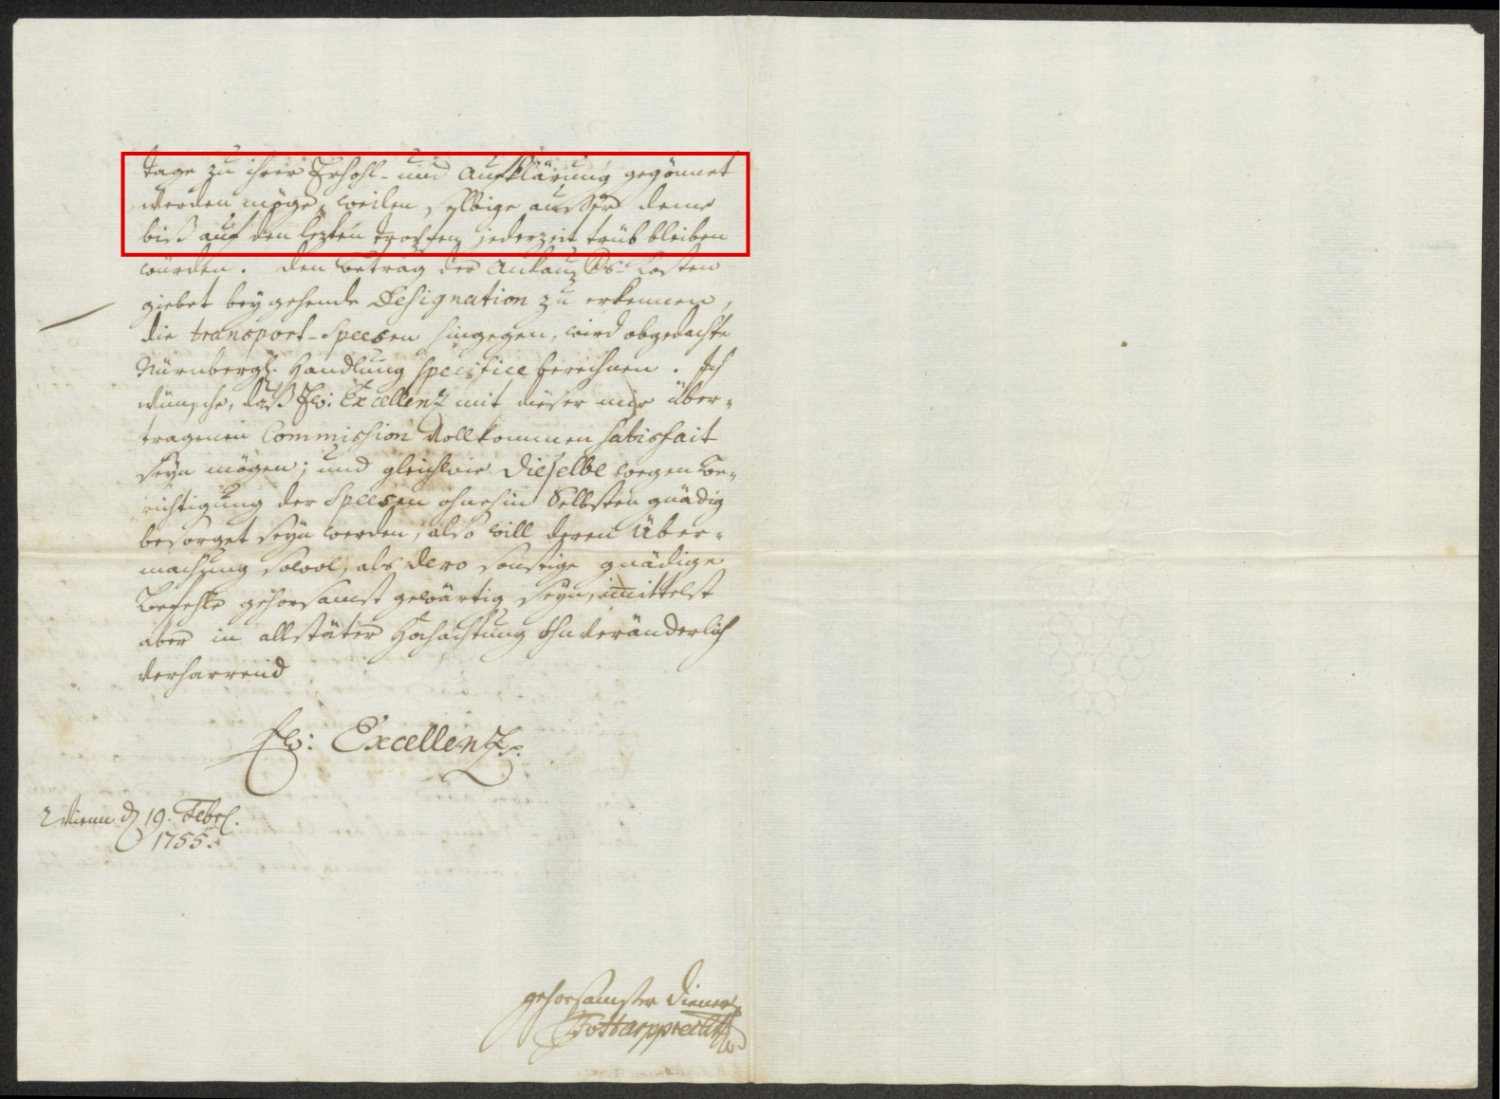 Tage zu ihrer Erhohl- und Aufklärung gegönnet
werden möge, weilen selbige ausser deme
biß auf den lezten Tropfen jederzeit trüb bleiben
würden. Den Betrag der Ankauffs-Kosten
giebet beygehende Designation zu erkennen,
die transport-Speesen hingegen, wird obgedachte
Nürnbergl. Handlung specifice berechnen. Ich
wünsche, daß Ew: Excellenz mit dieser mir über-
tragenen Commission vollkommen satisfait
seyn mögen; und gleichwie Dieselbe wegen Be-
richtigung der Speesen ohnehin Selbsten gnädig
besorget seyn werden, also will deren Über-
machung sowol, als dero sonstige gnädige
Befehle gehorsamst gewärtig seyn, immittelst
aber in allstäter Hochachtung ohnveränderlich
verharrend
Ew: Excellenz
Wienn d 19. Febr.
1755.
gehorsamster Diener
Harpprecht